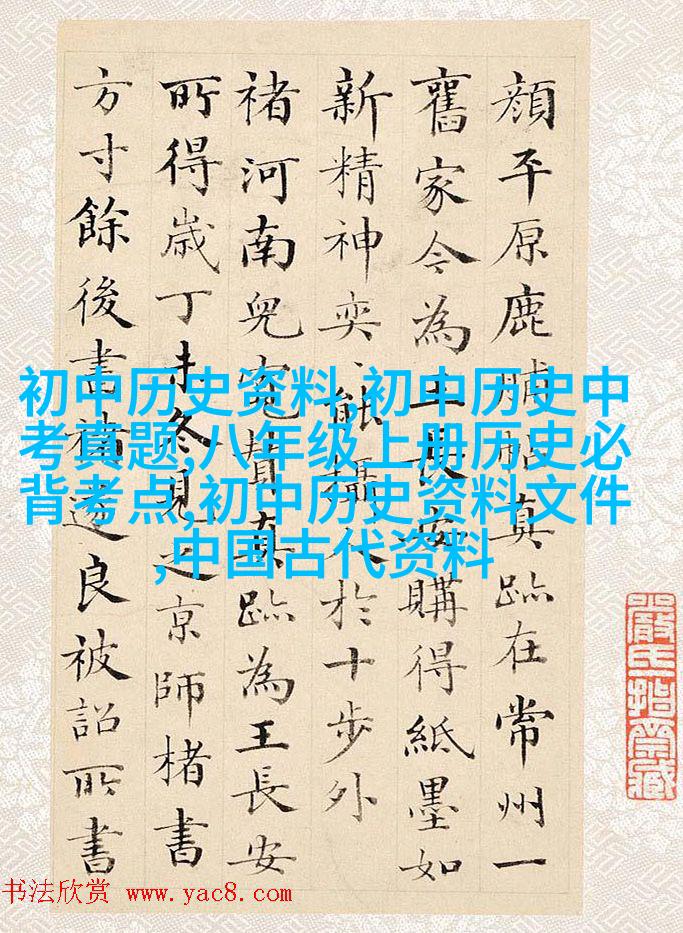 顔平原鹿脯帖真跡在常州一
舊家今為王長安購得紙墨如
新精神奕、能攝人於十步外
褚河南兒寬贊真跡為王長安
所得歲丁未冬見之京師楮書
方寸餘後書褚遂良被詔所書
初中历史资料,初中历史中
考真题,八年级上册历史必
背考点,初中历史资料文件
,中国古代资料
书法欣赏 www.yac8.com